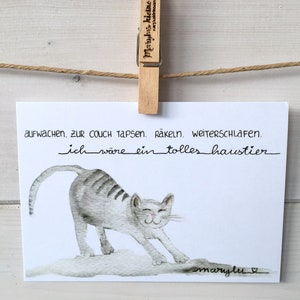 Marylus kleine
AUFWACHEN. ZUR COUCH TAPSEN. RÄKELN. WEITERSCHLAFEN.
ich wäre ein tolles haustier
marylu